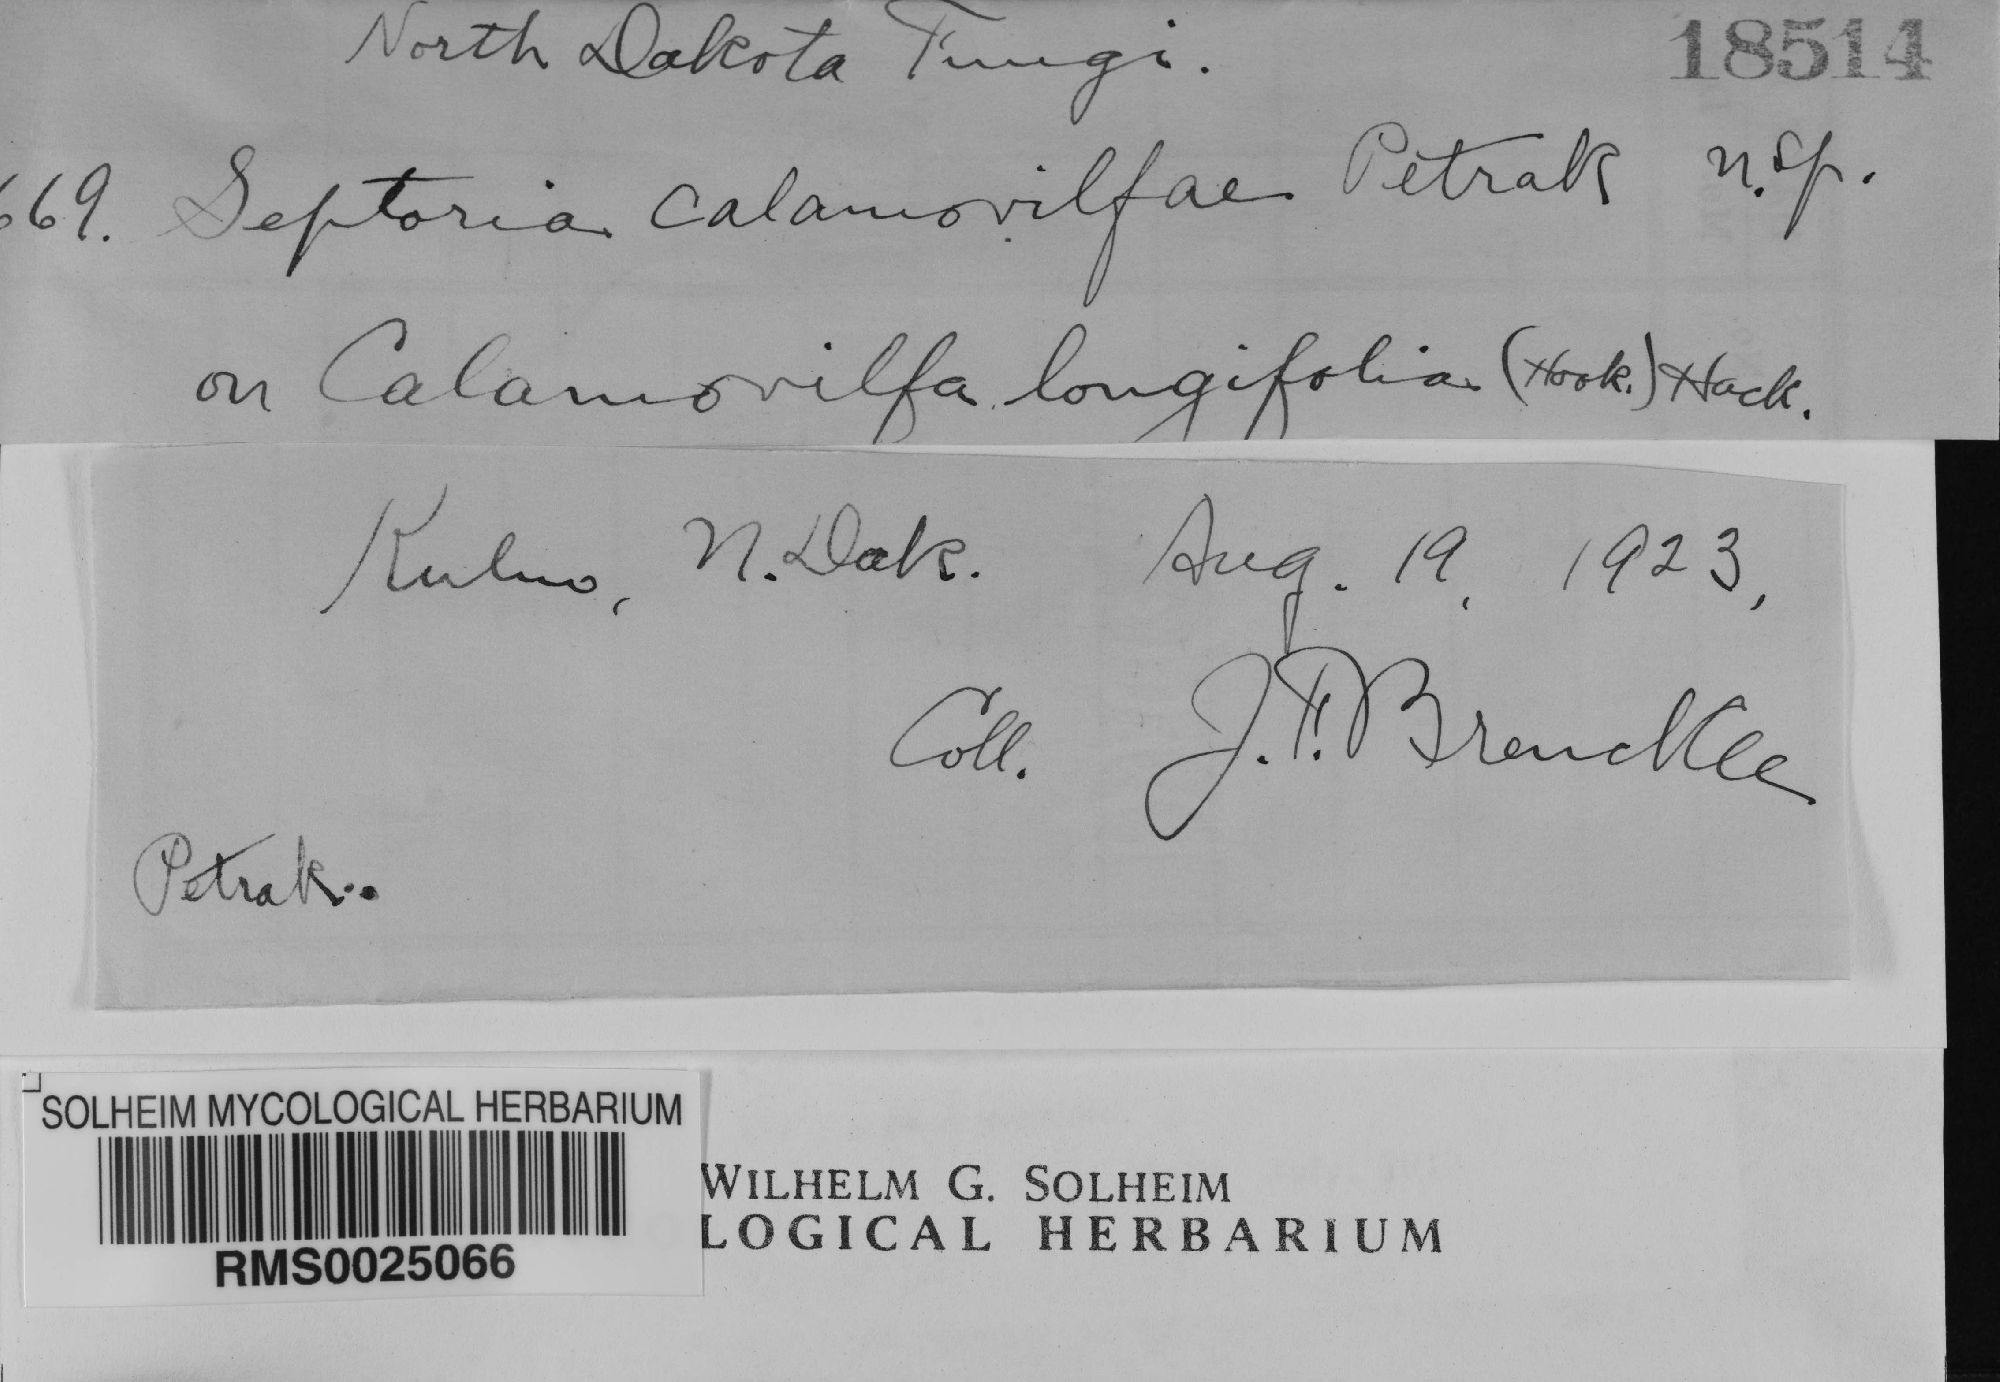 North Dakota Fungi.
18514
669. Septoria calamovilfae Petrak n.sp.
on Calamovilfa longifolia (Hook.) Hack.
Kulm, N. Dak. Aug. 19, 1923,
Coll. J.F. Brenckle
Petrak..
SOLHEIM MYCOLOGICAL HERBARIUM
RMS0025066
WILHELM G. SOLHEIM
LOGICAL HERBARIUM